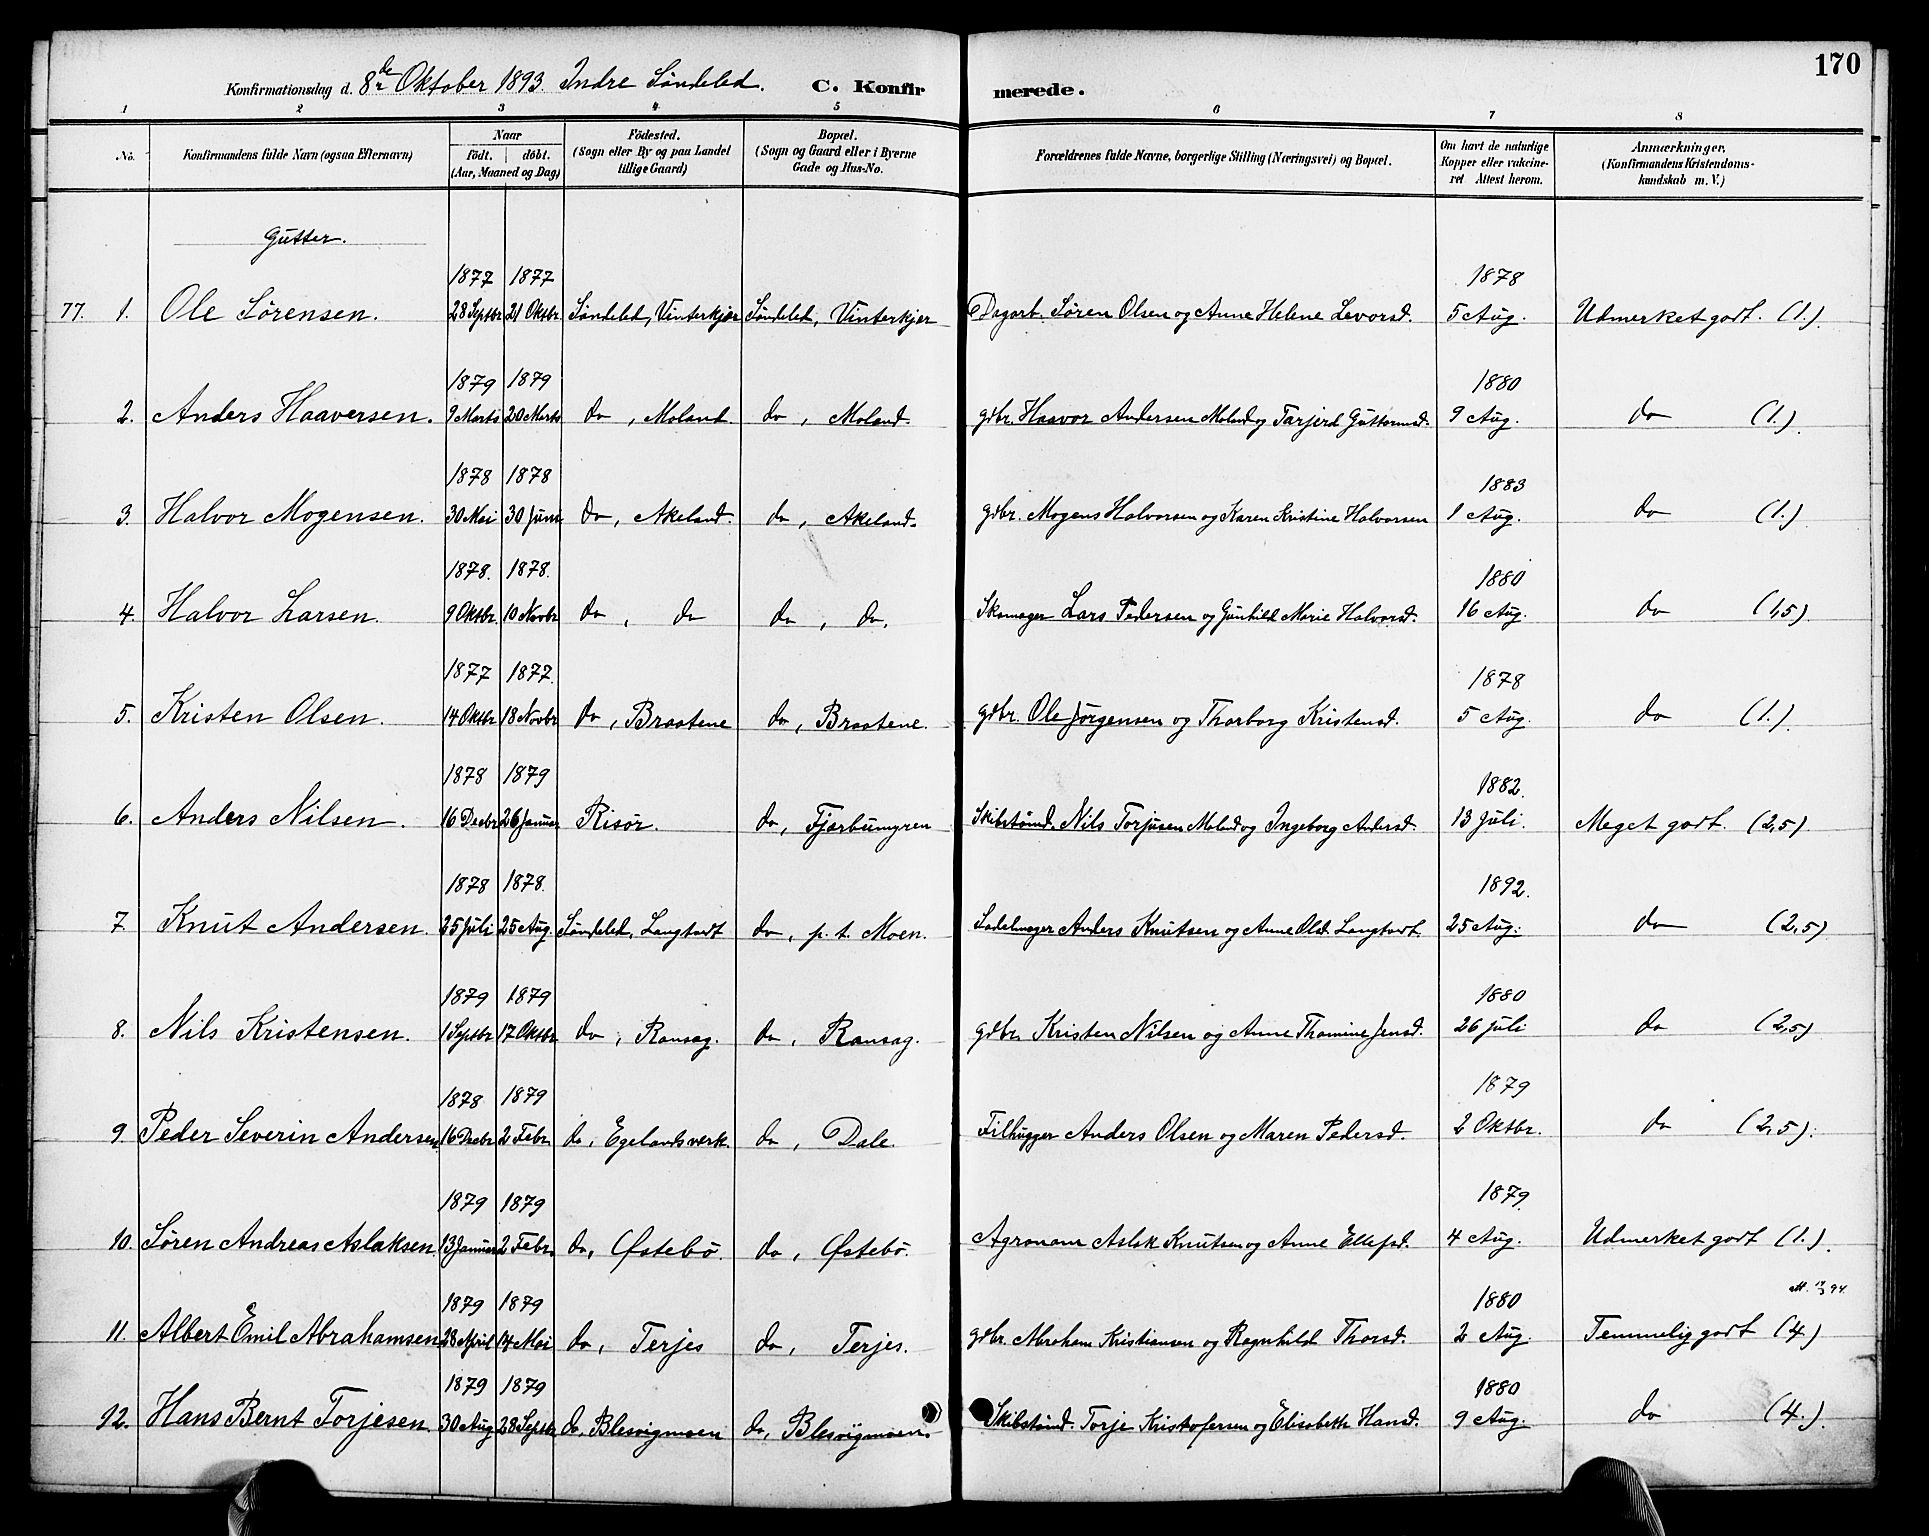 170
Konfirmationsdag d. 8de Oktober 1893. Indre Søndeled. C. Konfirmerede.
1 2 3 4 5 6 7 8
No. Konfirmandens fulde Navn (ogsaa Efternavn) Naar født. døbt. (Aar, Maaned og Dag) Födested. (Sogn eller By og paa Landet tillige Gaard) Bopæl. (Sogn og Gaard eller i Byerne Gade og Hus-No. Forældrenes fulde Navne, borgerlige Stilling (Næringsvei) og Bopæl. Om havt de naturlige Kopper eller vakcineret Attest herom. Anmærkninger. (Konfirmandens Kristendomskundskab m. V.)
Gutter.
1877 1877 1878
77. 1. Ole Sørensen. 28 Septbr 21 Oktbr. Søndeled, Vinterkjær Søndeled, Vinterkjær Dagarb. Søren Olsen og Anne Helene Levorsd. 5 Aug. Udmerket godt. (1.)
1879 1879 1880
2. Anders Haaversen. 9 Marts 20 Marts do, Moland. do, Moland. gdbr. Haavor Andersen Moland og Tarjerd Guttormsd. 9 Aug. do (1.)
1878 1878 1883
3. Halvor Mogensen. 30 Mai 30 Juni do, Akeland. do, Akeland. gdbr. Mogens Halvorsen og Karen Kristine Halvorsen 1 Aug. do (1.)
1878. 1878. 1880
4. Halvor Larsen. 9 Oktbr. 10 Novbr do, do do, do. Skomager Lars Pedersen og Gunhild Marie Halvorsd. 16 Aug. do (1,5)
1877 1877. 1878
5. Kristen Olsen. 14 Oktbr 18 Novbr do, Braatene do, Braatene. gdbr. Ole Jørgensen og Thorborg Kristensd. 5 Aug. do (1.)
1878 1879 1882.
6. Anders Nilsen. 16 Decbr 26 Januar Risør. do, Fjærbumyren Skibstømd. Nils Torjusen Moland og Ingeborg Andersd. 13 Juli. Meget godt. (2,5)
1878 1878. 1892.
7. Knut Andersen. 25 Juli 25 Aug. Søndeled, Langtvedt do, p. t. Moen. Sadelmager Anders Knutsen og Anne Olsd. Langtvedt. 25 Aug. do (2,5)
1879 1879 1880
8. Nils Kristensen. 1 Septbr 17 Oktbr do, Ransag. do, Ransag. gdbr. Kristen Nilsen og Anne Thomine Jensd. 26 Juli do (2,5)
1878 1879 1879
9. Peder Severin Andersen. 16 Decbr 2 Febr. do, Egelandsverk. do, Dale. Filhugger Anders Olsen og Maren Pedersd. 2 Oktbr. do (2,5).
1879 1879 1879.
10. Søren Andreas Aslaksen. 13 Januar 2 Febr. do, Østebø. do, Østebø. Agronom Aslak Knutsen og Anne Ellefsd. 4 Aug. Udmerket godt (1.)
1879 1879 1880
11. Albert Emil Abrahamsen 28 April 14 Mai do, Terjes do, Terjes. gdbr. Abraham Kristiansen og Ragnhild Thorsd. 2 Aug. Temmelig godt (4.)
1879 1879 1880
12. Hans Bernt Torjesen. 30 Aug 28 Septbr do, Blesvigmoen do, Blesvigmoen. Skibstømd. Torje Kristofersen og Elisabeth Hansd. 9 Aug. do (4.)